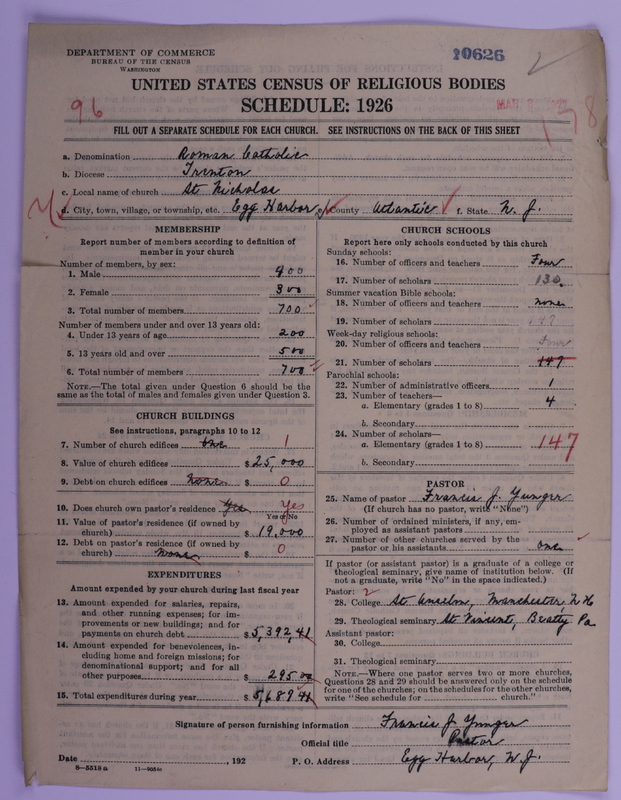 DEPARTMENT OF COMMERCE
BUREAU OF THE CENSUS
WASHINGTON
10626
UNITED STATES CENSUS OF RELIGIOUS BODIES
96
SCHEDULE: 1926
178
FILL OUT A SEPARATE SCHEDULE FOR EACH CHURCH. SEE INSTRUCTIONS ON THE BACK OF THIS SHEET
a. Denomination Roman Catholic
b. Diocese Trenton
c. Local name of church St. Nicholas
d. City, town, village, or township, etc. Egg Harbor e. County Atlantic f. State N. J.
MEMBERSHIP
Report number of members according to definition of
member in your church
Number of members, by sex:
1. Male 400
2. Female 300
3. Total number of members 700
Number of members under and over 13 years old:
4. Under 13 years of age 200
5. 13 years old and over 500
6. Total number of members 700
NOTE.—The total given under Question 6 should be the
same as the total of males and females given under Question 3.
CHURCH BUILDINGS
See instructions, paragraphs 10 to 12
7. Number of church edifices one 1
8. Value of church edifices $ 25,000
9. Debt on church edifices None $ 0
10. Does church own pastor's residence? Yes Yes
Yes or No
11. Value of pastor's residence (if owned by
church) $ 19,000
12. Debt on pastor's residence (if owned by
church) None $ 0
EXPENDITURES
Amount expended by your church during last fiscal year
13. Amount expended for salaries, repairs,
and other running expenses; for im-
provements or new buildings; and for
payments on church debt $ 5,392,41
14. Amount expended for benevolences, in-
cluding home and foreign missions; for
denominational support; and for all
other purposes $ 295 00
15. Total expenditures during year $ 5,687 41
CHURCH SCHOOLS
Report here only schools conducted by this church
Sunday schools:
16. Number of officers and teachers Four
17. Number of scholars 130
Summer vacation Bible schools:
18. Number of officers and teachers none
19. Number of scholars
Week-day religious schools:
20. Number of officers and teachers Four
21. Number of scholars 147
Parochial schools:
22. Number of administrative officers 1
23. Number of teachers—
a. Elementary (grades 1 to 8) 4
b. Secondary
24. Number of scholars—
a. Elementary (grades 1 to 8) 147
b. Secondary
PASTOR
25. Name of pastor Francis J. Yunger
(If church has no pastor, write "None")
26. Number of ordained ministers, if any, em-
ployed as assistant pastors
27. Number of other churches served by the
pastor or his assistants one
If pastor (or assistant pastor) is a graduate of a college or
theological seminary, give name of institution below. (If
not a graduate, write "No" in the space indicated.)
Pastor: 2
28. College St Anselm, Manchester, N H
29. Theological seminary St Vincent, Beatty Pa
Assistant pastor:
30. College
31. Theological seminary
NOTE.—Where one pastor serves two or more churches,
Questions 28 and 29 should be answered only on the schedule
for one of the churches; on the schedules for the other churches,
write "See schedule for church."
Signature of person furnishing information Francis J Yunger
Official title Pastor
Date , 192 P. O. Address Egg Harbor, N. J.
8—5518a 11—9056a